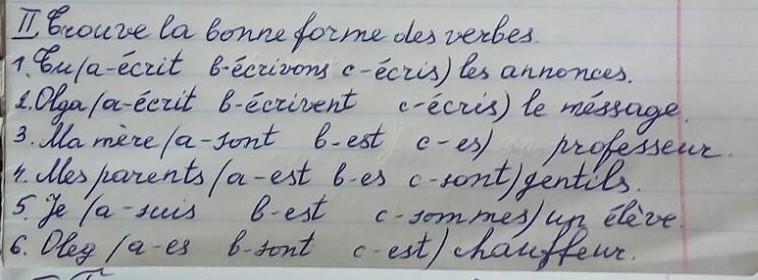 II Trouve la bonne forme des verbes.
1. Tu (a-écrit b-écrivons c-écris) les annonces.
2. Olga (a-écrit b-écrivent c-écris) le méssage.
3. Ma mère (a-sont b-est c-es) professeur.
4. Mes parents (a-est b-es c-sont) gentils.
5. Je (a-suis b-est c-sommes) un élève.
6. Oleg (a-es b-sont c-est) chauffeur.